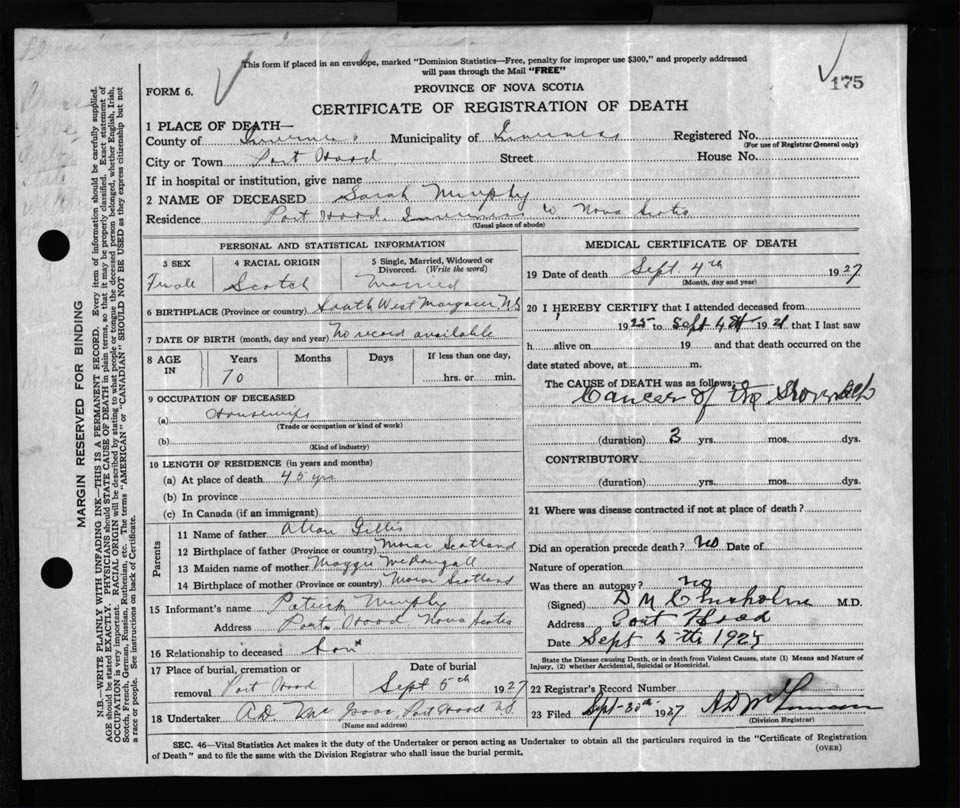 This form if placed in an envelope, marked "Dominion Statistics—Free, penalty for improper use $300," and properly addressed
will pass through the Mail "FREE"
175
FORM 6.
PROVINCE OF NOVA SCOTIA
CERTIFICATE OF REGISTRATION OF DEATH
1 PLACE OF DEATH—
County of Inverness Municipality of Inverness Registered No.
(For use of Registrar General only)
City or Town Port Hood Street House No.
If in hospital or institution, give name
2 NAME OF DECEASED Sarah Murphy
Residence Port Hood Inverness Co Nova Scotia
(Usual place of abode)
PERSONAL AND STATISTICAL INFORMATION
3 SEX 4 RACIAL ORIGIN 5 Single, Married, Widowed or Divorced. (Write the word)
Female Scotch Married
6 BIRTHPLACE (Province or country) South West Margaree N.S
7 DATE OF BIRTH (month, day and year) No record available
8 AGE IN Years Months Days If less than one day,
70 hrs. or min.
9 OCCUPATION OF DECEASED
(a) Housewife
(Trade or occupation or kind of work)
(b)
(Kind of industry)
10 LENGTH OF RESIDENCE (in years and months)
(a) At place of death 45 yrs
(b) In province
(c) In Canada (if an immigrant)
Parents
11 Name of father Allan Gillis
12 Birthplace of father (Province or country) Morar Scotland
13 Maiden name of mother Maggie McDougall
14 Birthplace of mother (Province or country) Morar Scotland
15 Informant's name Patrick Murphy
Address Port Hood Nova Scotia
16 Relationship to deceased Son
17 Place of burial, cremation or removal Port Hood Date of burial Sept 5th 1927
18 Undertaker A.D. Mc Isaac, Port Hood NS
(Name and address)
MEDICAL CERTIFICATE OF DEATH
19 Date of death Sept. 4th 1927
(Month, day and year)
20 I HEREBY CERTIFY that I attended deceased from
1925 to Sept 4th 192 that I last saw
h alive on 19 and that death occurred on the
date stated above, at m.
The CAUSE of DEATH was as follows:
Cancer of the Stomach
(duration) 3 yrs. mos. dys.
CONTRIBUTORY
(duration) yrs. mos. dys.
21 Where was disease contracted if not at place of death?
Did an operation precede death? No Date of
Nature of operation
Was there an autopsy? No
(Signed) D M Chisholm M.D.
Address Port Hood
Date Sept 5th 192
State the Disease causing Death, or in death from Violent Causes, state (1) Means and Nature of
Injury, (2) whether Accidental, Suicidal or Homicidal.
22 Registrar's Record Number
23 Filed Sept-30th 1927
(Division Registrar)
SEC. 46—Vital Statistics Act makes it the duty of the Undertaker or person acting as Undertaker to obtain all the particulars required in the "Certificate of Registration
of Death" and to file the same with the Division Registrar who shall issue the burial permit.
(OVER)
MARGIN RESERVED FOR BINDING
N.B.—WRITE PLAINLY WITH UNFADING INK—THIS IS A PERMANENT RECORD. Every item of information should be carefully supplied.
AGE should be stated EXACTLY. PHYSICIANS should STATE CAUSE OF DEATH in plain terms, so that it may be properly classified. Exact statement of
OCCUPATION is very important. RACIAL ORIGIN will be described by stating to what people or tongue the deceased person belonged, whether English, Irish,
Scotch, French, German, Russian, Ruthenian, etc. The terms "AMERICAN" or "CANADIAN" SHOULD NOT BE USED as they express citizenship but not
a race or people. See instructions on back of Certificate.